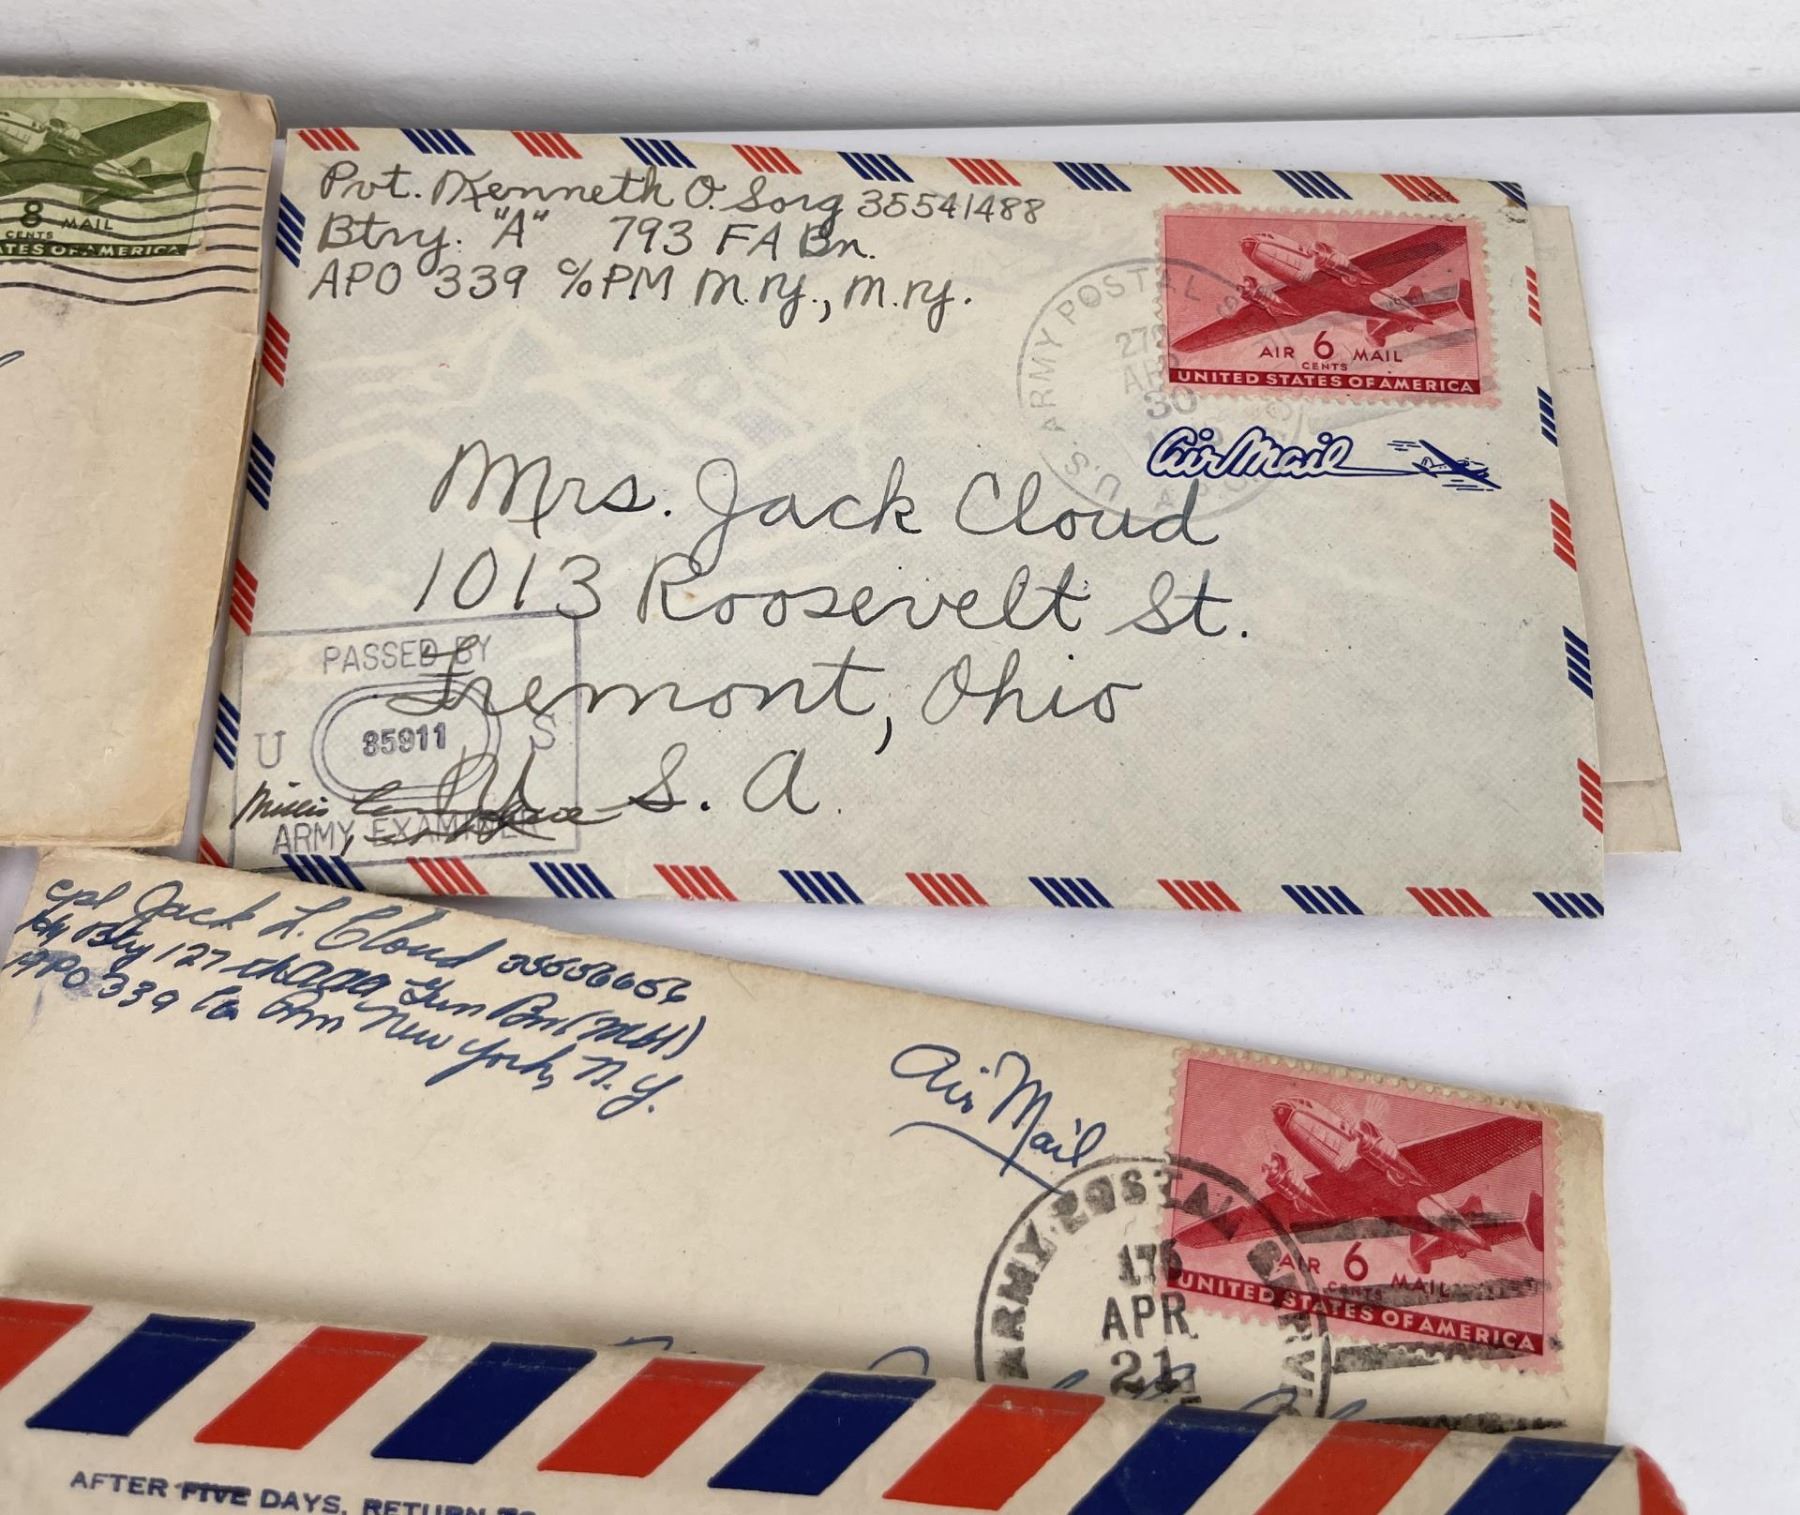 8 MAIL
CENTS
TES OF AMERICA
Pvt. Kenneth O. Sorg 35541488
Btry. "A" 793 FA Bn.
APO 339 c/o PM N.Y., N.Y.
AIR 6 MAIL
CENTS
UNITED STATES OF AMERICA
U.S. ARMY POSTAL
30
Air Mail
Mrs. Jack Cloud
1013 Roosevelt St.
Fremont, Ohio
U. S. A.
PASSED BY
U 35911 S
ARMY EXAMINER
Cpl Jack L. Cloud
Btry 127 AAA Gun Bn (Mbl)
APO 339 Pm New York, N.Y.
Air Mail
ARMY POSTAL
APR
21
AIR 6 MAIL
CENTS
UNITED STATES OF AMERICA
AFTER FIVE DAYS, RETURN TO